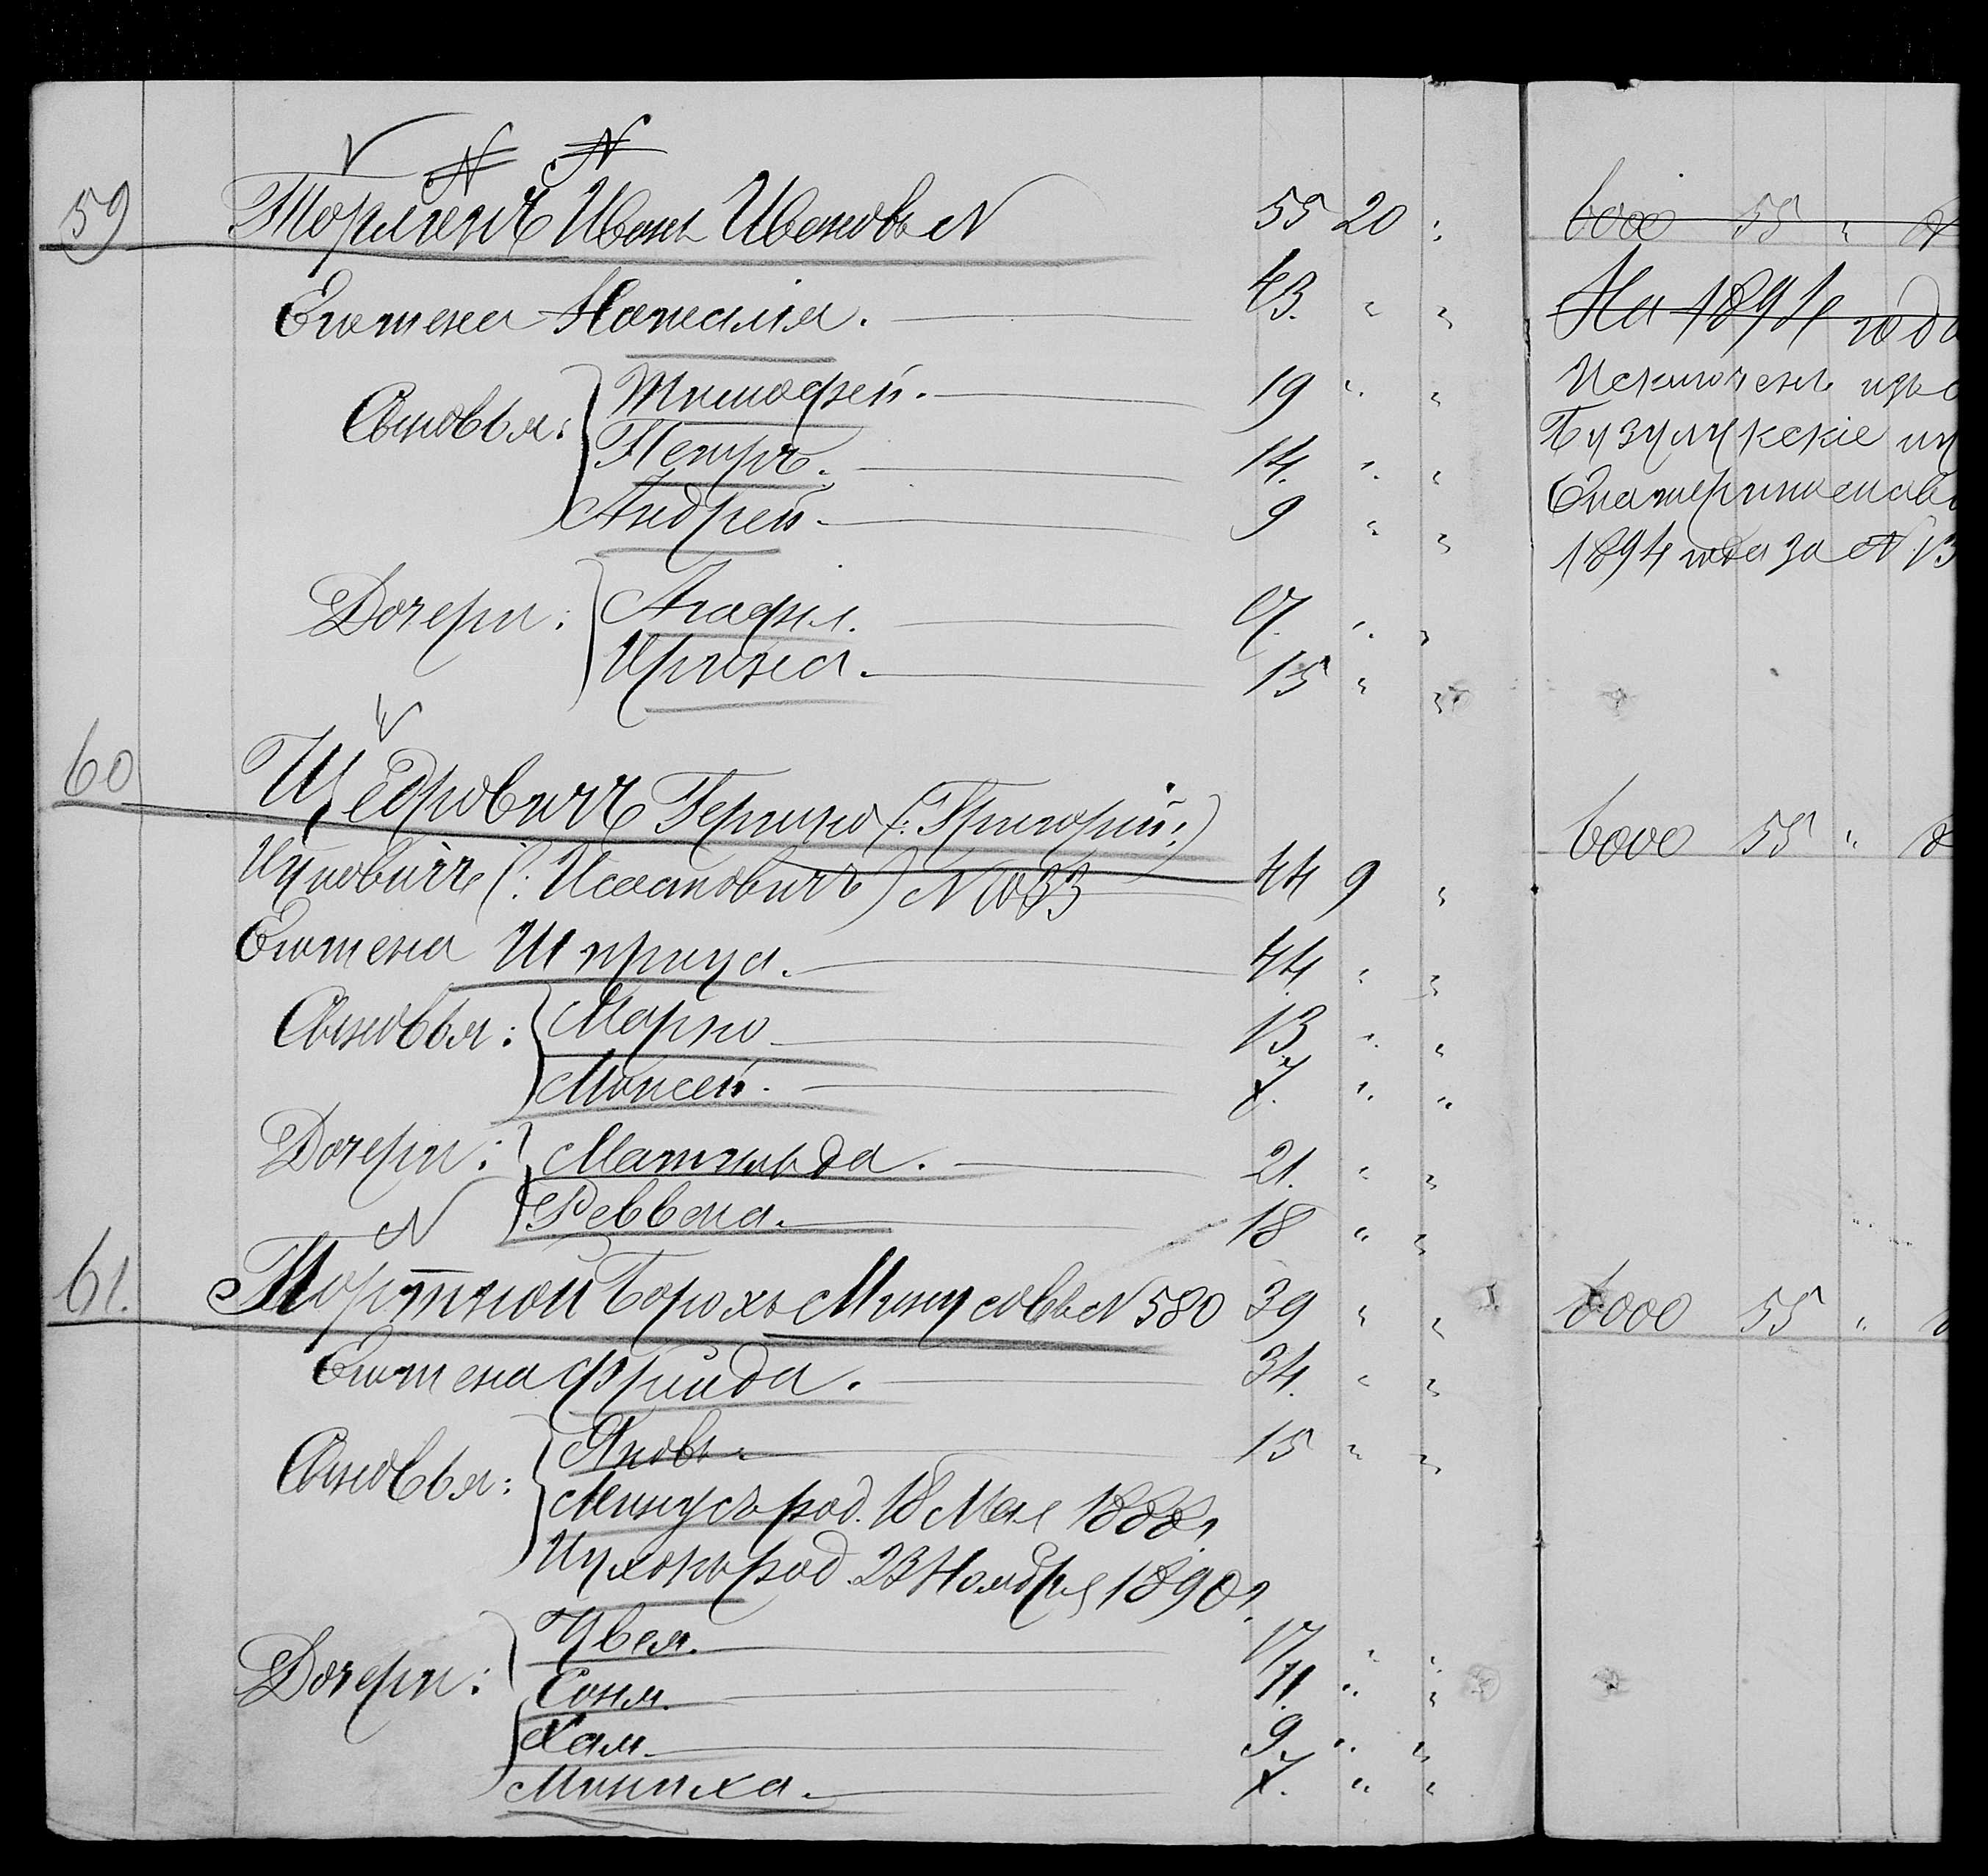 59 Иванъ Ивановъ N 55 20 "
Его жена Наталия. 43. " "
Сыновья: Тимофей. 19 " "
Петръ. 14. " "
Андрей. 9 " "
Дочери: Агафия. 17. " "
Ирина. 15 " "
60 Щедровичъ Гершко (: Григорий :)
Ицковичъ (: Исааковичъ) N 1033 44 9 "
Его жена Шпринца. 44. " "
Сыновья: Марко 13. " "
Моисей. 7. " "
Дочери: Матильда. 21. " "
Реввека. 18 " "
61. Портной Борохъ Минусовъ N 580 39 " "
Его жена Фрейда. 34. " "
Сыновья: Яковъ 15 " "
Минусъ род. 18 Мая 1888 г.
Ицхокъ род. 23 Ноября 1890 г.
Дочери: 17 " "
Соня. 11. " "
Хая 9. " "
Миниха. 7. " "
6000 55 "
На 1894 года
Исключенъ изъ
Бузулукскіе
Екатеринослав
1894 года за N 13
6000 55 "
6000 55 "